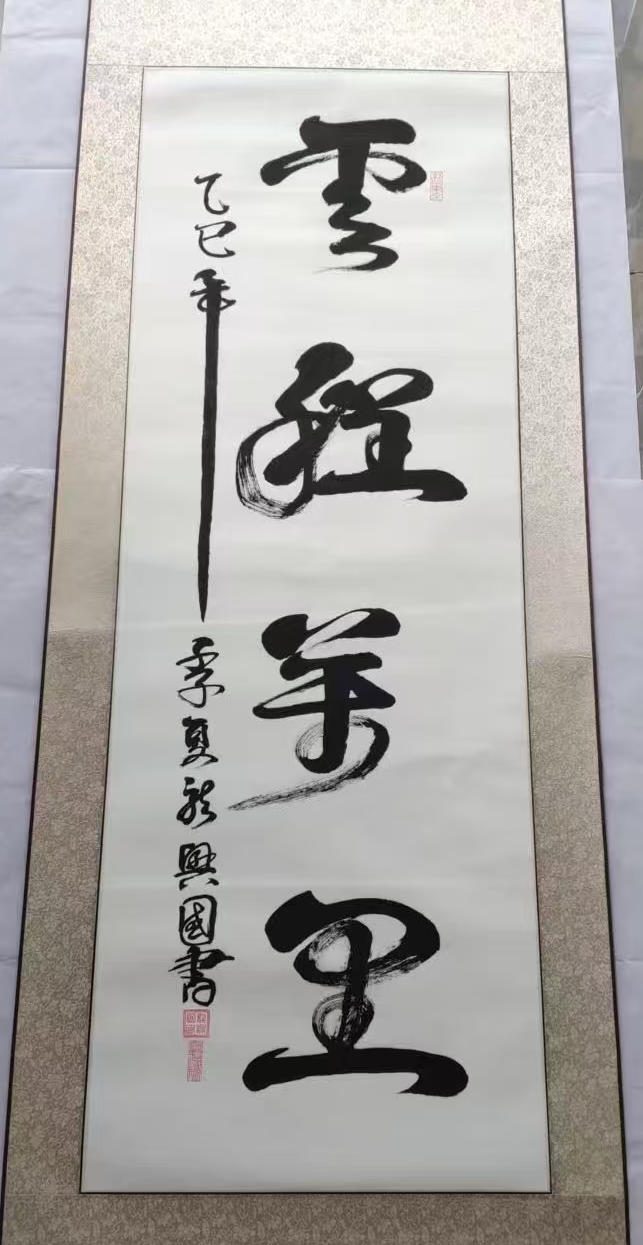 雲程萬里
乙巳年季夏彭興國書